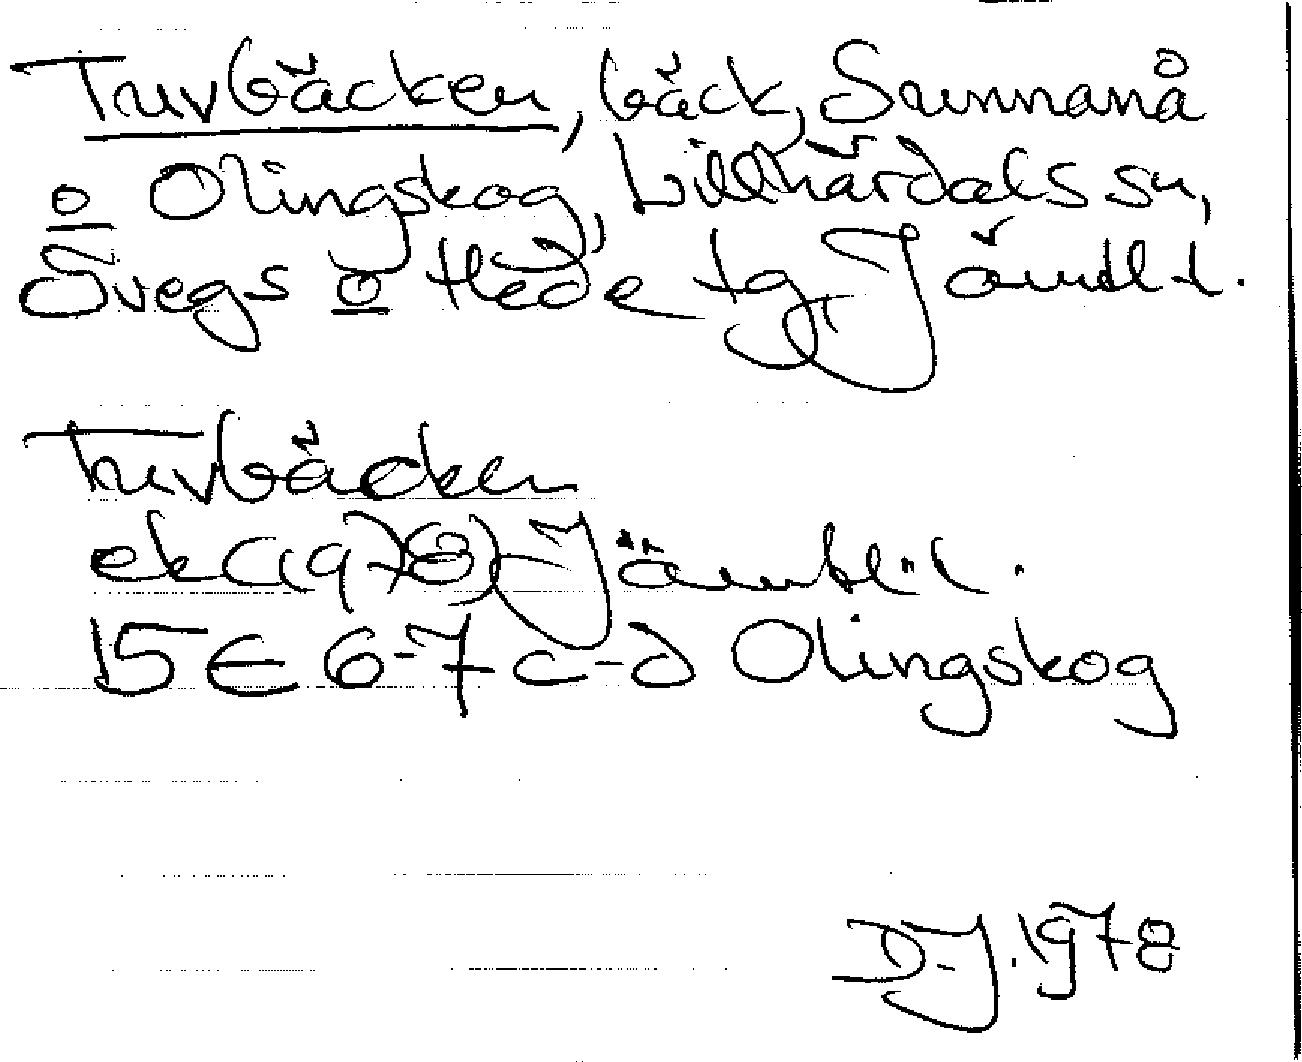 Tuvbäcken, bäck, Sunnanå
o Olingskog, Lillhärdals sn,
Svegs o Hede tg, Jämtl l.
Tuvbäcken
ek (1978) Jämtl. l.
15E 6-7 c-d Olingskog
D-J. 1978